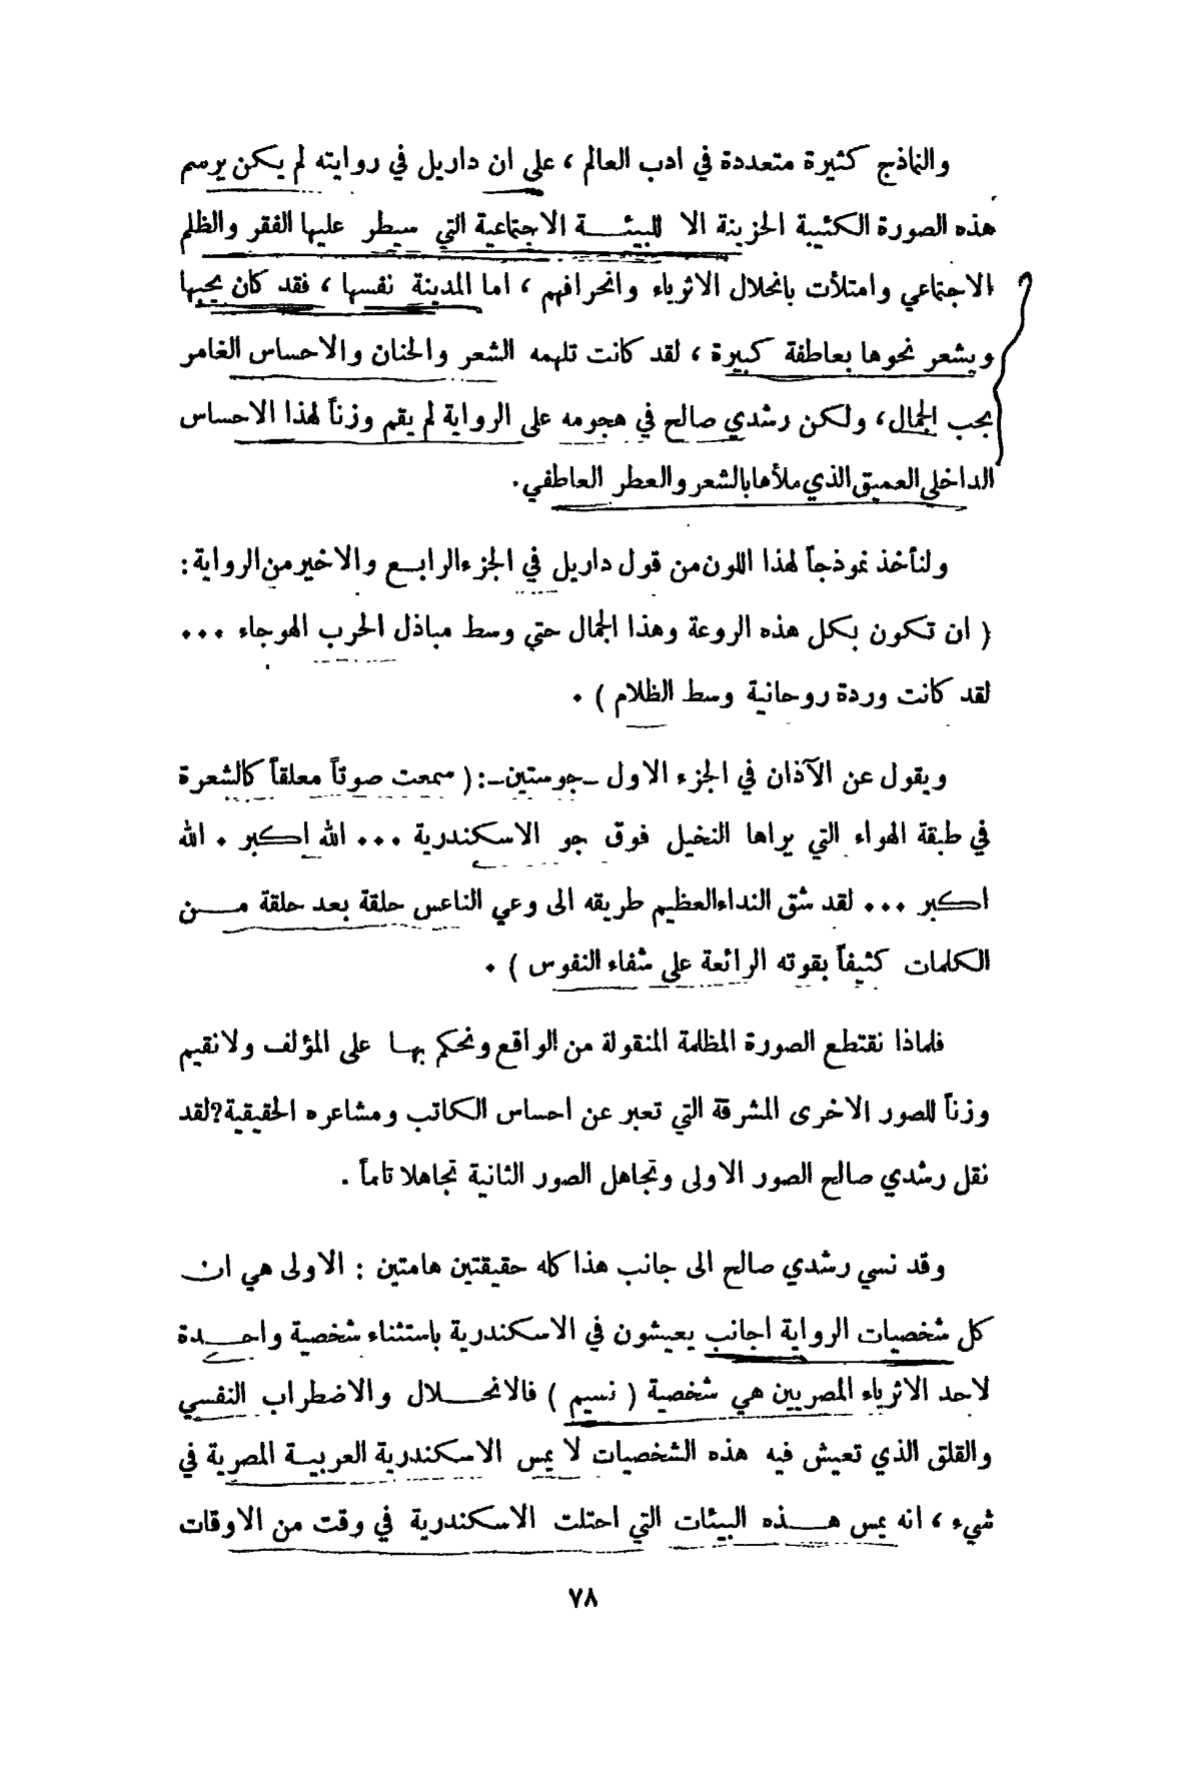 والنماذج كثيرة متعددة في ادب العالم ، على ان داريل في روايته لم يكن يرسم
هذه الصورة الكئيبة الحزينة الا للبيئة الاجتماعية التي سيطر عليها الفقر والظلم
الاجتماعي وامتلأت بانحلال الاثرياء وانحرافهم ، اما المدينة نفسها ، فقد كان يحبها
ويشعر نحوها بعاطفة كبيرة ، لقد كانت تلهمه الشعر والحنان والاحساس الغامر
بحب الجمال ، ولكن رشدي صالح في هجومه على الرواية لم يقم وزناً لهذا الاحساس
الداخلي العميق الذي ملأها بالشعر والعطر العاطفي .
ولنأخذ نموذجاً لهذا اللون من قول داريل في الجزء الرابع والاخير من الرواية :
( ان تكون بكل هذه الروعة وهذا الجمال حتى وسط مباذل الحرب الهوجاء ...
لقد كانت وردة روحانية وسط الظلام ) .
ويقول عن الآذان في الجزء الاول - جوستين - : ( سمعت صوتاً معلقاً كالشعرة
في طبقة الهواء التي يراها النخيل فوق جو الاسكندرية ... الله اكبر . الله
اكبر ... لقد شق النداء العظيم طريقه الى وعي الناعس حلقة بعد حلقة من
الكلمات كثيفاً بقوته الرائعة على شفاء النفوس ) .
فلماذا نقتطع الصورة المظلمة المنقولة من الواقع ونحكم بها على المؤلف ولا نقيم
وزناً للصور الاخرى المشرقة التي تعبر عن احساس الكاتب ومشاعره الحقيقية؟ لقد
نقل رشدي صالح الصور الاولى وتجاهل الصور الثانية تجاهلا تاماً .
وقد نسي رشدي صالح الى جانب هذا كله حقيقتين هامتين : الاولى هي ان
كل شخصيات الرواية اجانب يعيشون في الاسكندرية باستثناء شخصية واحدة
لاحد الاثرياء المصريين هي شخصية ( نسيم ) فالانحلال والاضطراب النفسي
والقلق الذي تعيش فيه هذه الشخصيات لا يمس الاسكندرية العربية المصرية في
شيء ، انه يمس هذه البيئات التي احتلت الاسكندرية في وقت من الاوقات
٧٨